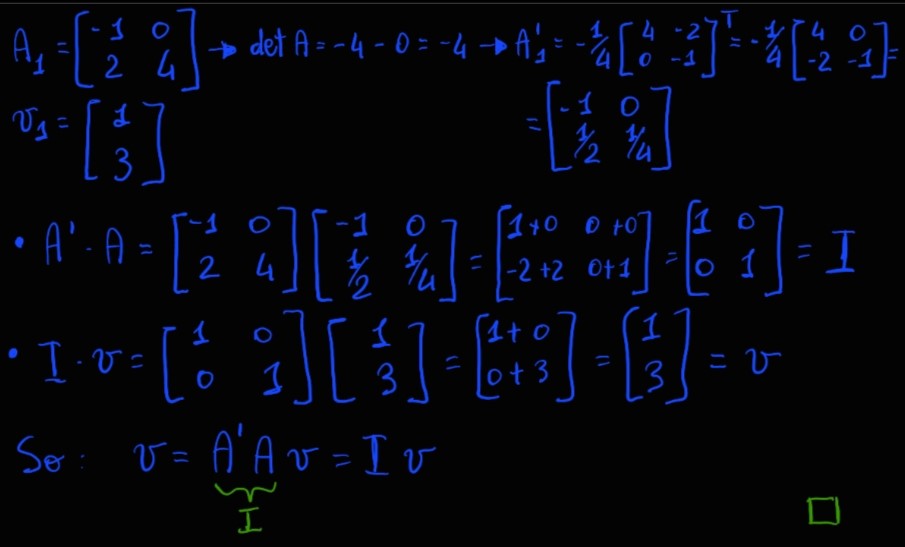 A₁ = [-1 0; 2 4] → det A = -4 - 0 = -4 → A₁' = -1/4 [4 -2; 0 -1]ᵀ = -1/4 [4 0; -2 -1] =
v₁ = [1; 3] = [-1 0; 1/2 1/4]
• A' · A = [-1 0; 2 4] [-1 0; 1/2 1/4] = [1+0 0+0; -2+2 0+1] = [1 0; 0 1] = I
• I · v = [1 0; 0 1] [1; 3] = [1+0; 0+3] = [1; 3] = v
So: v = A'A v = I v
I